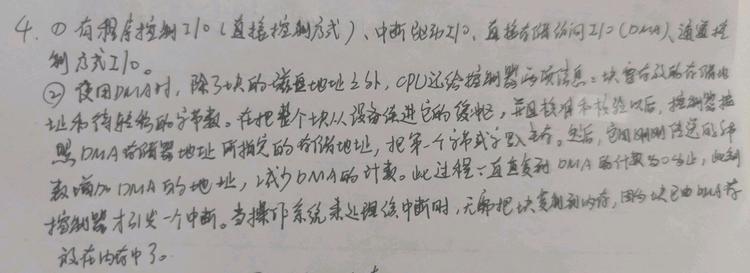 4. ① 有程序控制I/O(直接控制方式)、中断驱动I/O、直接存储访问I/O(DMA)、通道控
制方式I/O。
② 使用DMA时,除了块的磁盘地址之外,CPU还给控制器两项信息:块要存放的存储地
址和待转移的字节数。在把整个块从设备读进它的缓冲,并且核准和检验以后,控制器按
照DMA存储器地址所指定的存储地址,把第一个字节或字写入主存。然后,它用刚刚传送的字节
数增加DMA的地址,减少DMA的计数。此过程一直重复到DMA的计数为0为止,此刻
控制器才引发一个中断。当操作系统来处理该中断时,无需把块复制到内存,因为块已由DMA存
放在内存中了。